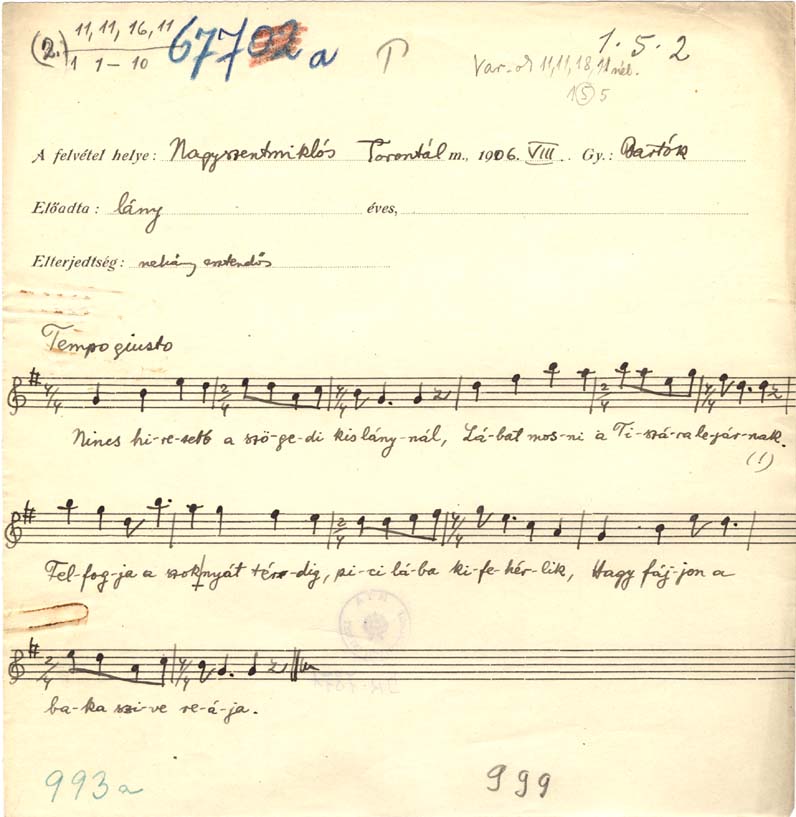 (2.) 11, 11, 16, 11
1 1 – 10
677 a T
1. 5. 2
Var. 11, 11, 18, 11 nél.
1 (5) 5
A felvétel helye: Nagyszentmiklós Torontál m., 1906. VIII. Gy.: Bartók
Előadta: lány éves,
Elterjedtség: nehány esztendős
Tempo giusto
Nincs hi-re-sebb a szö-ge-di kislány-nál, Lá-bat mos-ni a Ti-szá-ra le-jár-nak.
(!)
Fel-fog-ja a szoknyát tér-dig, pi-ci lá-ba ki-fe-hér-lik, Hagy fáj-jon a
ba-ka szi-ve re-á-ja.
993a 999